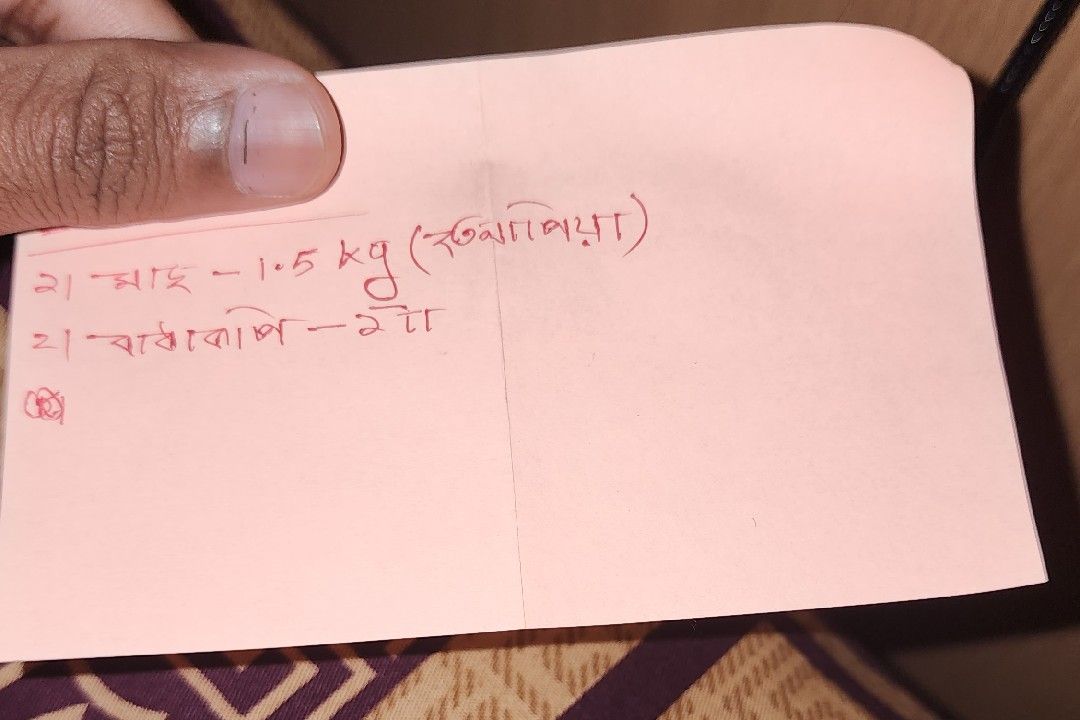 ২। মাছ - 1.5 kg (তেলাপিয়া)
২। বাধাকপি - ২ টা